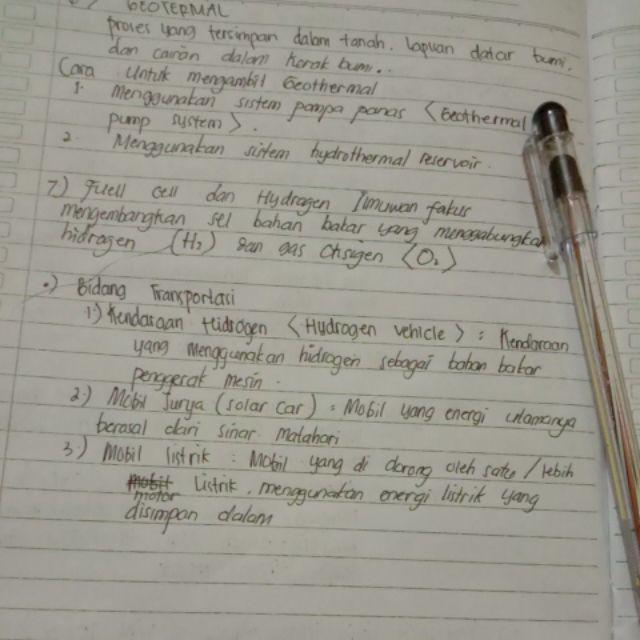 GEOTERMAL
proses yang tersimpan dalam tanah. lapuan datar bumi.
dan cairan dalam kerak bumi.
Cara untuk mengambil Geothermal
1. Menggunakan sistem pompa panas <Geothermal
pump system>.
2 Menggunakan sistem hydrothermal reservoir.
7) Fuell cell dan Hydrogen Ilmuwan fakus
mengembangkan sel bahan bakar yang menggabungkan
hidrogen (H₂) dan gas Oksigen <O₂>
•) Bidang Transportasi
1) Kendaraan Hidrogen <Hydrogen vehicle> : Kendaraan
yang menggunakan hidrogen sebagai bahan bakar
penggerak mesin.
2) Mobil Surya (solar car) : Mobil yang energi utamanya
berasal dari sinar matahari
3) Mobil listrik : Mobil yang di dorong oleh satu / lebih
motor listrik, menggunakan energi listrik yang
disimpan dalam